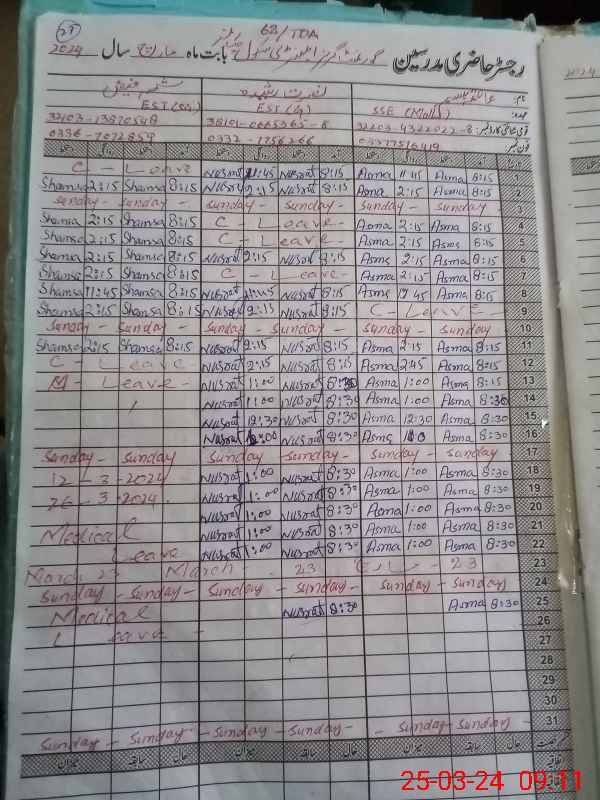 27
68/TDA
رجسٹر حاضری مدرسین گورنمنٹ گرلز ایلیمنٹری سکول بابت ماہ مارچ سال 2024
2024
نام:
EST (Sc) EST (Sc) SSE (Math)
عہدہ:
32203-4322022-8
فون نمبر:
C - Leave Nusrat 11:45 Nusrat 8:15 Asma 11:45 Asma 8:15 1
Shamsa 2:15 Shamsa 8:15 Nusrat 2:15 Nusrat 8:15 Asma 2:15 Asma 8:15 2
Sunday - Sunday - Sunday - Sunday - Sunday - Sunday 3
Shamsa 2:15 Shamsa 8:15 C - Leave - Asma 2:15 Asma 8:15 4
Shamsa 2:15 Shamsa 8:15 C - Leave - Asma 2:15 Asma 8:15 5
Shamsa 2:15 Shamsa 8:15 Nusrat 2:15 Nusrat 8:15 Asma 2:15 Asma 8:15 6
Shamsa 2:15 Shamsa 8:15 C - Leave - Asma 2:15 Asma 8:15 7
Shamsa 11:45 Shamsa 8:15 Nusrat 11:45 Nusrat 8:15 Asma 45 Asma 8:15 8
Shamsa 2:15 Shamsa 8:15 Nusrat 2:15 Nusrat 8:15 C - Leave - 9
Sunday - Sunday - Sunday - Sunday - Sunday - Sunday 10
Shamsa 2:15 Shamsa 8:15 Nusrat 2:15 Nusrat 8:15 Asma 2:15 Asma 8:15 11
C - Leave - Nusrat 2:15 Nusrat 8:15 Asma 2:45 Asma 8:15 12
M - Leave - Nusrat 1:00 Nusrat 8:30 Asma 1:00 Asma 8:15 13
Nusrat 1:00 Nusrat 8:30 Asma 1:00 Asma 8:30 14
Nusrat 12:30 Nusrat 8:30 Asma 12:30 Asma 8:30 15
Nusrat Nusrat 8:30 Asma Asma 8:30 16
Sunday - Sunday - Sunday - Sunday - Sunday - Sunday 17
12 - 3 - 2024 Nusrat 1:00 Nusrat 8:30 Asma 1:00 Asma 8:30 18
26 - 3 - 2024 Nusrat 1:00 Nusrat 8:30 Asma 1:00 Asma 8:30 19
Nusrat 1:00 Nusrat 8:30 Asma 1:00 Asma 8:30 20
Medical Nusrat 1:00 Nusrat 8:30 Asma 1:00 Asma 8:30 21
Leave Nusrat 1:00 Nusrat 8:30 Asma 1:00 Asma 8:30 22
March 23 March 23 مارچ 23 23
Sunday - Sunday - Sunday - Sunday - Sunday - Sunday 24
Medical Nusrat 8:30 Asma 8:30 25
Leave - 26
27
28
29
30
Sunday - Sunday - Sunday - Sunday - Sunday - Sunday 31
میزان سابقہ حال میزان سابقہ حال میزان سابقہ حال
25-03-24 09:11